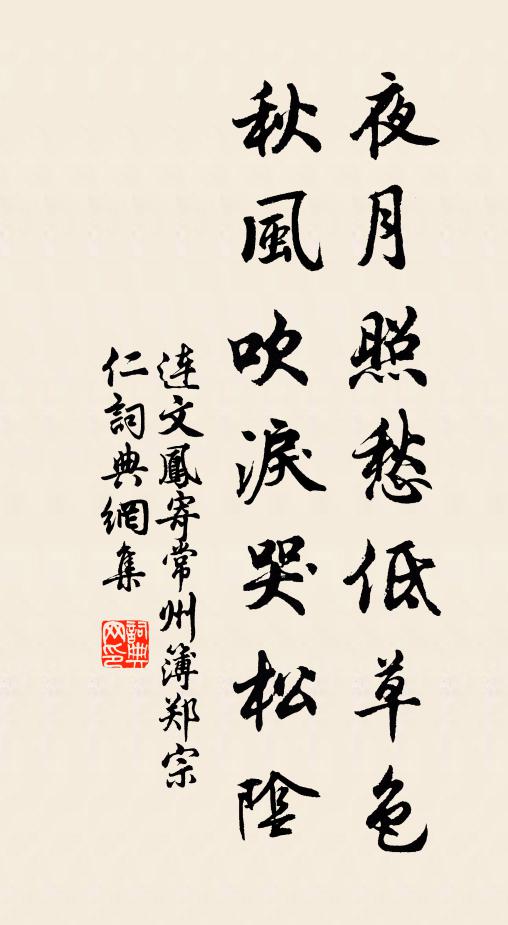 夜月照愁低草色
秋風吹淚哭松陰
連文鳳寄常州簿郑宗
仁詞典網集
詞典网印